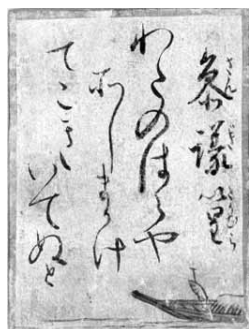 參議篁
わたのはらや
そしまかけ
てこきいてぬと